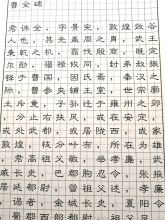 曹全碑
君讳全，字景完，敦煌效谷
人也。其先盖周之胄，武王
秉乾之机，翦伐殷商，既定
尔勋，福禄攸同，封弟叔振
铎于曹国，因氏焉。秦汉之
际，曹参夹辅王室，世宗廓
土斥竟，子孙迁于雍州之
郊，分止右扶风，或在安定，
或处武都，或居陇西，或家
敦煌。枝分叶布，所在为雄。
君高祖父敏，举孝廉，武威
长史，巴郡朐忍令，张掖居
延都尉。曾祖父述，孝廉，